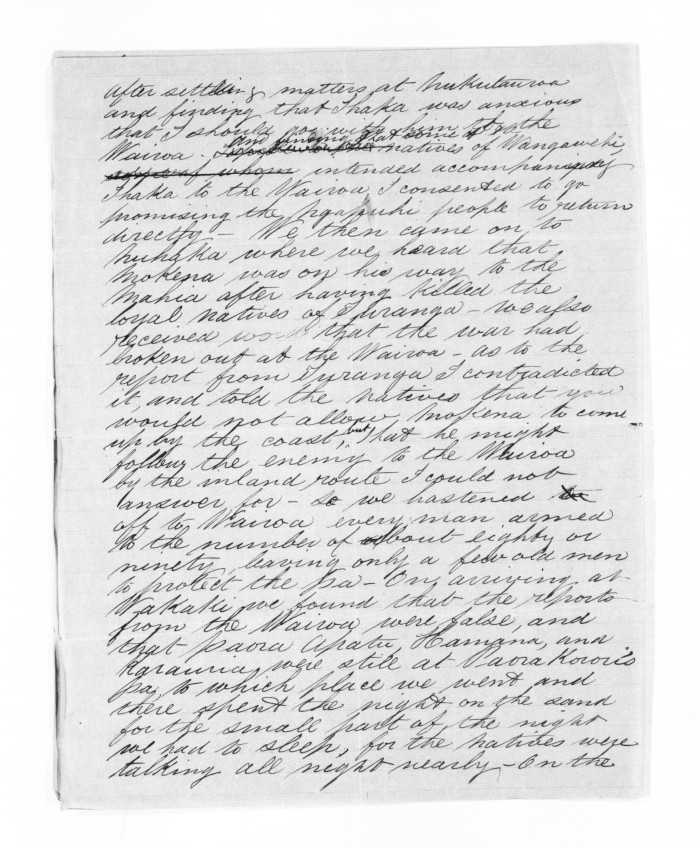 after settling matters at Nukutaurua
and finding that Ihaka was anxious
that I should go with him to the
and finding that some of
Wairoa - natives of Wangawehi
intended accompanying
Ihaka to the Wairoa, I consented to go
promising the Ngapuhi people to return
directly - We then came on to
Nuhaka, where we heard that
Mokena was on his way to the
Mahia after having killed the
loyal natives of Turanga - we also
received word that the war had
broken out at the Wairoa - as to the
report from Turanga I contradicted
it, and told the Natives that you
would not allow Mokena to come
up by the coast, but, that he might
follow the enemy to the Wairoa
by the inland route I could not
answer for - so we hastened
off to Wairoa every man armed
to the number of about eighty or
ninety, leaving only a few old men
to protect the pa - On arriving at
Wakaki we found that the reports
from the Wairoa were false, and
that Paora Apatu, Hamana, and
Karauria, were still at Paora Kororis
pa, to which place we went and
there spent the night on the sand
for the small part of the night
we had to sleep, for the natives were
talking all night nearly - On the